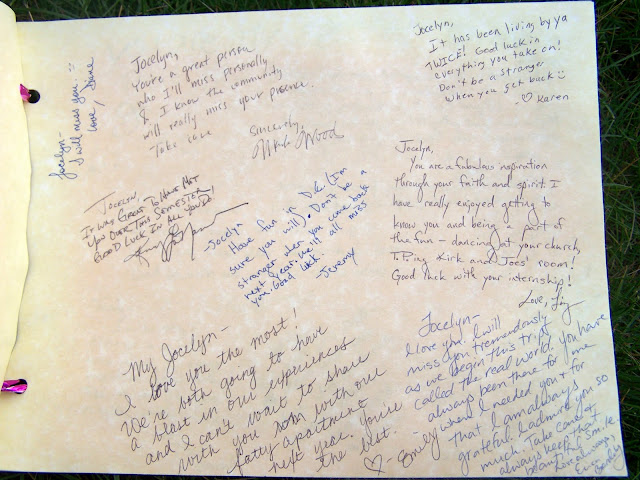 Jocelyn-
I will miss you. :)
Love, Diane
Jocelyn,
You're a great person
who I'll miss personally
& I know the community
will really miss your presence.
Take care
Sincerely,
Wood
Jocelyn,
It has been living by ya
TWICE! Good luck in
everything you take on!
Don't be a stranger
when you get back :)
-♡ Karen
Jocelyn,
It was great to have met
you over this semester!
Good luck in all you do!
Jocelyn
Have fun in D.C. (I'm
sure you will). Don't be a
stranger when you come back
next year. We'll all miss
you. Good luck.
-Jeremy
Jocelyn,
You are a fabulous inspiration
through your faith and spirit. I
have really enjoyed getting to
know you and being a part of
the fun - dancing at your church,
Kirk and Joes' room!
Good luck with your internship!
Love,
My Jocelyn-
I love you the most!
We're both going to have
a blast in our experiences
and I can't wait to share
with you with our
fatty apartment
next year. You're
the best.
♡- Emily
Jocelyn-
I love you. I will
miss you tremendously
as we begin this trip
called the real world. You have
always been there for me
when I needed you & for
that I am always
grateful. I admire you so
much. Take care &
always keep that
smile
Love always,
Emily